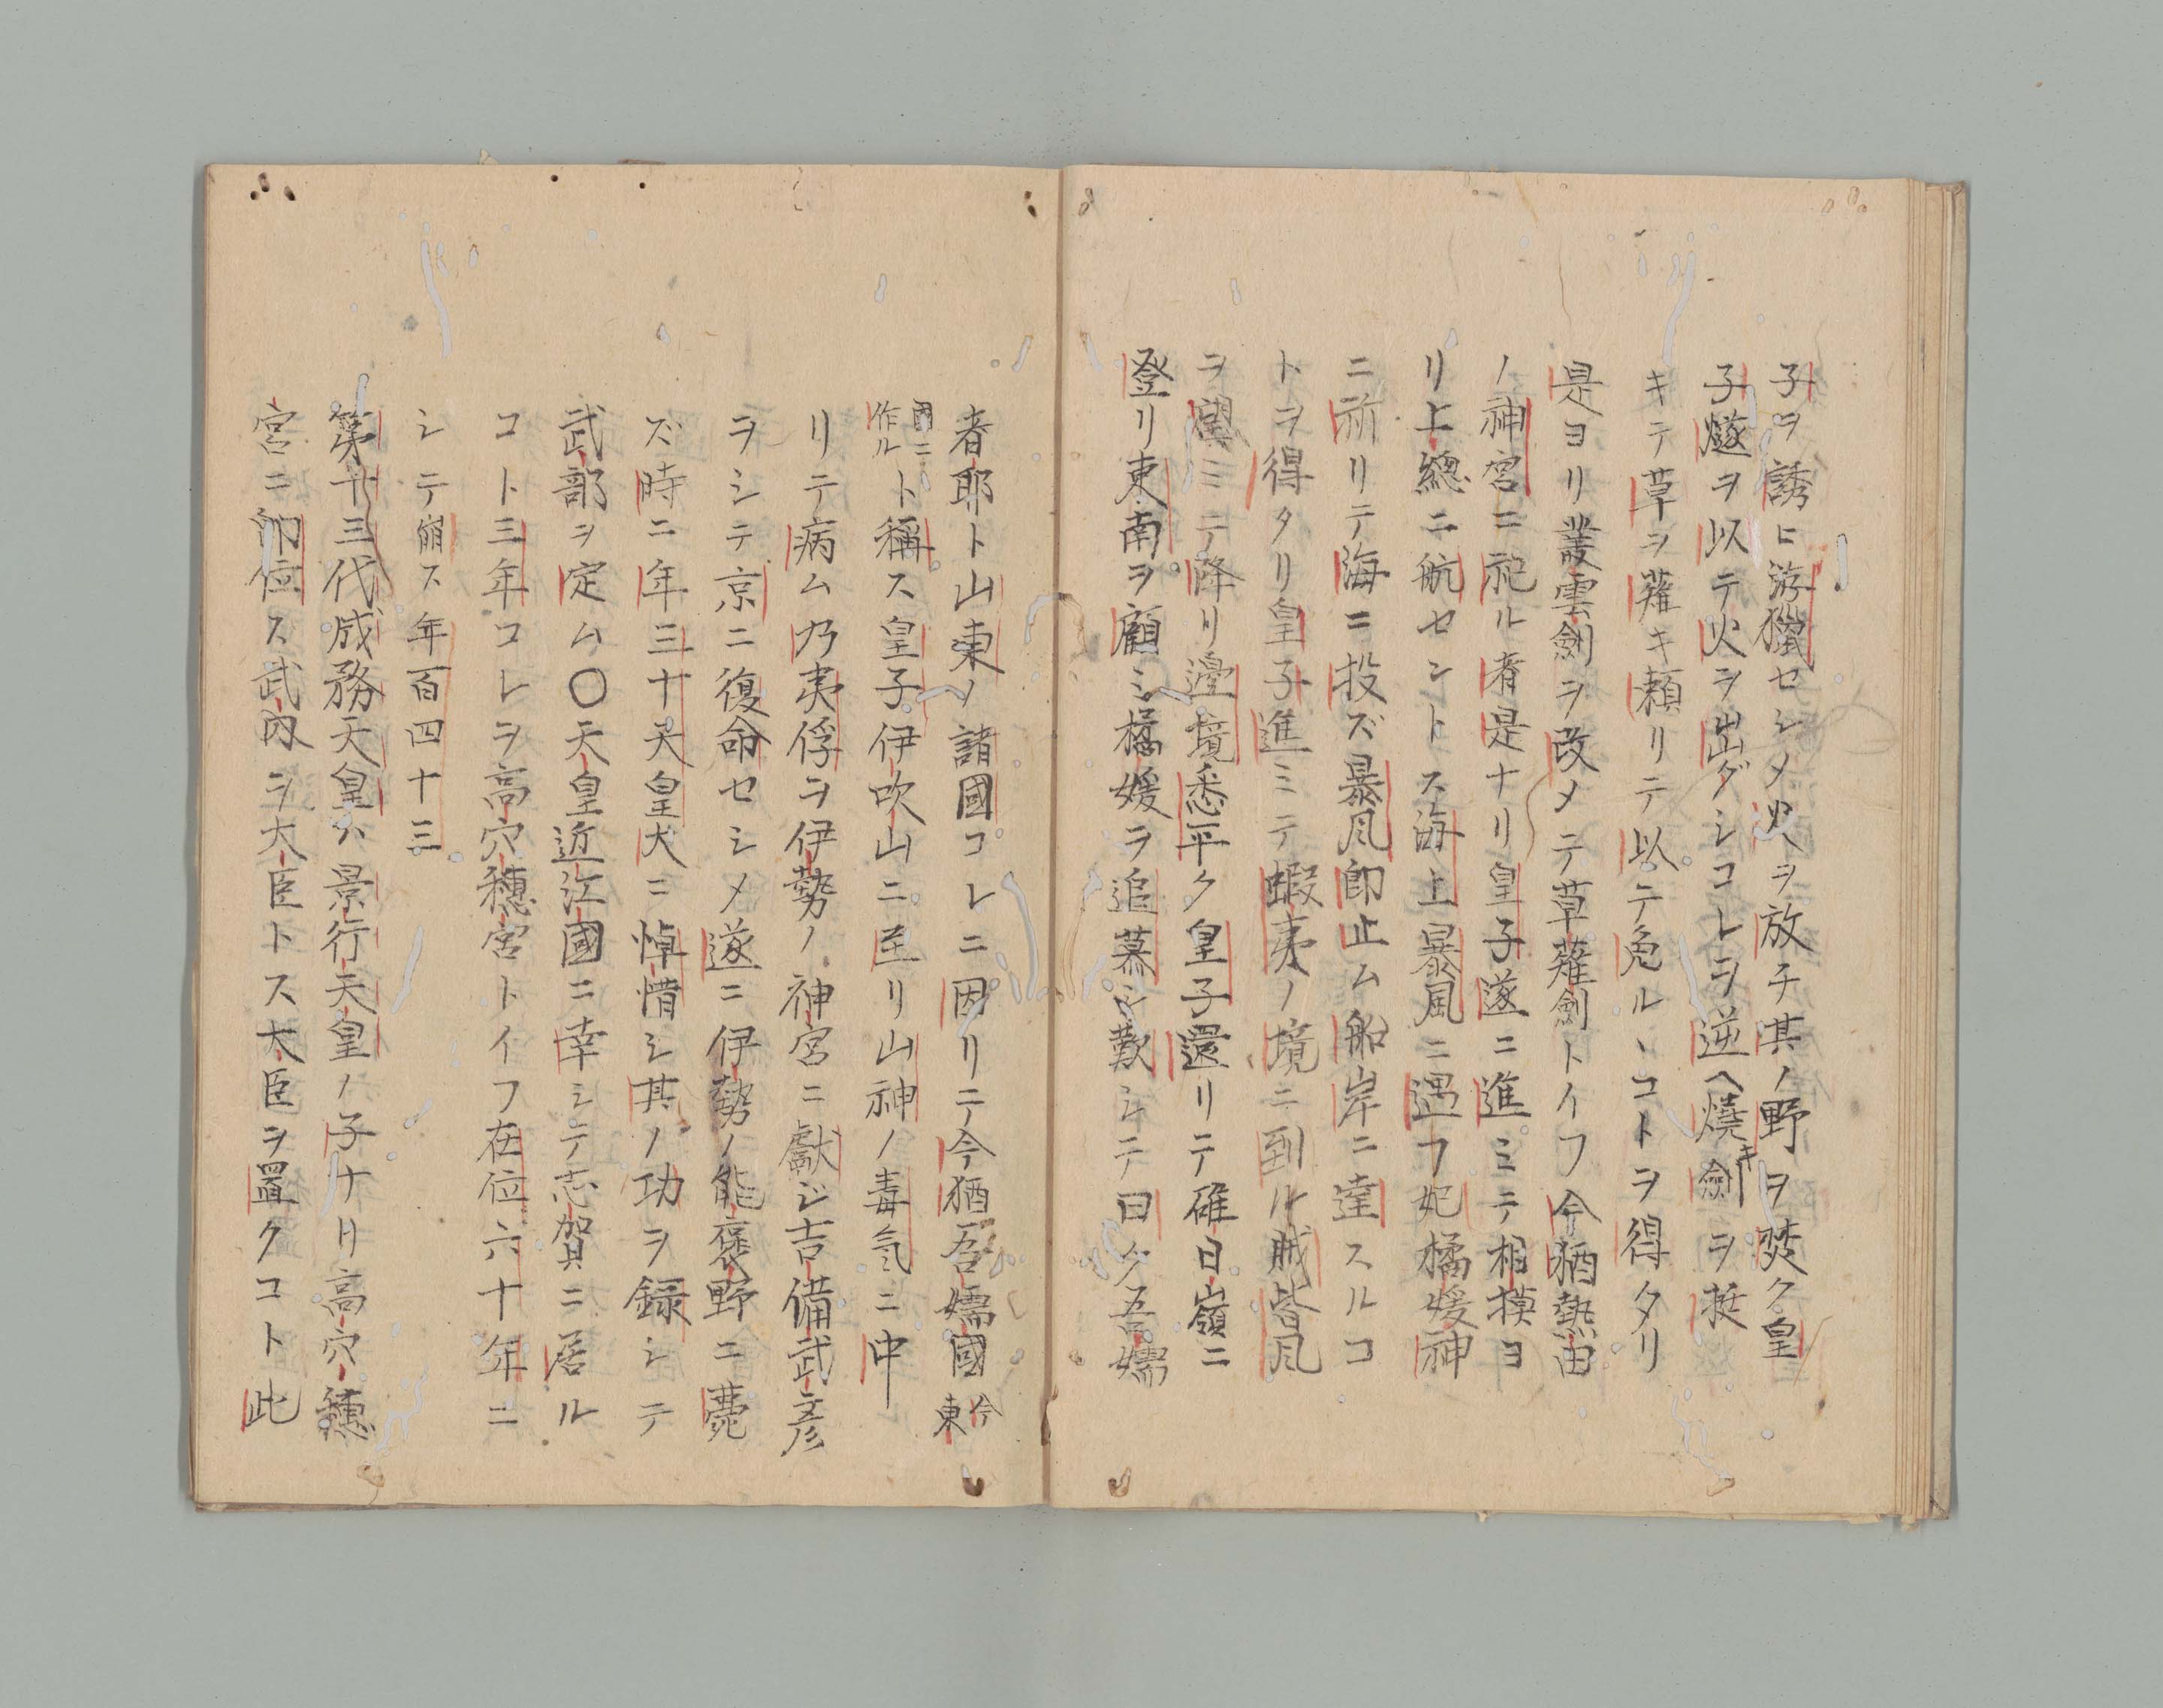 子ヲ誘ヒ游獵セシメ火ヲ放チ其ノ野ヲ焚ク皇
子燧ヲ以テ火ヲ出ダシコレヲ逆ヘ燒キ劍ヲ挺
キテ草ヲ薙キ頼リテ以テ免ルヽコトヲ得タリ
是ヨリ叢雲劍ヲ改メテ草薙劍トイフ今猶熱田
ノ神宮ニ祀ル者是ナリ皇子遂ニ進ミテ相摸ヨ
リ上總ニ航セントス海上暴風ニ遇フ妃橘媛神
ニ祈リテ海ニ投ズ暴風卽止ム船岸ニ達スルコ
トヲ得タリ皇子進ミテ蝦夷ノ境ニ到ル賊皆風
ヲ望ミテ降リ邊境悉平ク皇子還リテ碓日嶺ニ
登リ東南ヲ顧ミ橘媛ヲ追慕シ歎シテ曰ク吾嬬
者耶ト山東ノ諸國コレニ因リテ今猶吾嬬國今東
國ニ作ルト稱ス皇子伊吹山ニ至リ山神ノ毒氣ニ中
リテ病ム乃夷俘ヲ伊勢ノ神宮ニ獻ジ吉備武彦
ヲシテ京ニ復命セシメ遂ニ伊勢ノ能褒野ニ薨
ズ時ニ年三十天皇大ニ悼惜シ其ノ功ヲ録シテ
武部ヲ定ム〇天皇近江國ニ幸シテ志賀ニ居ル
コト三年コレヲ高穴穗宮トイフ在位六十年ニ
シテ崩ス年百四十三
第十三代成務天皇ハ景行天皇ノ子ナリ高穴穗
宮ニ卽位ス武內ヲ大臣トス大臣ヲ置クコト此